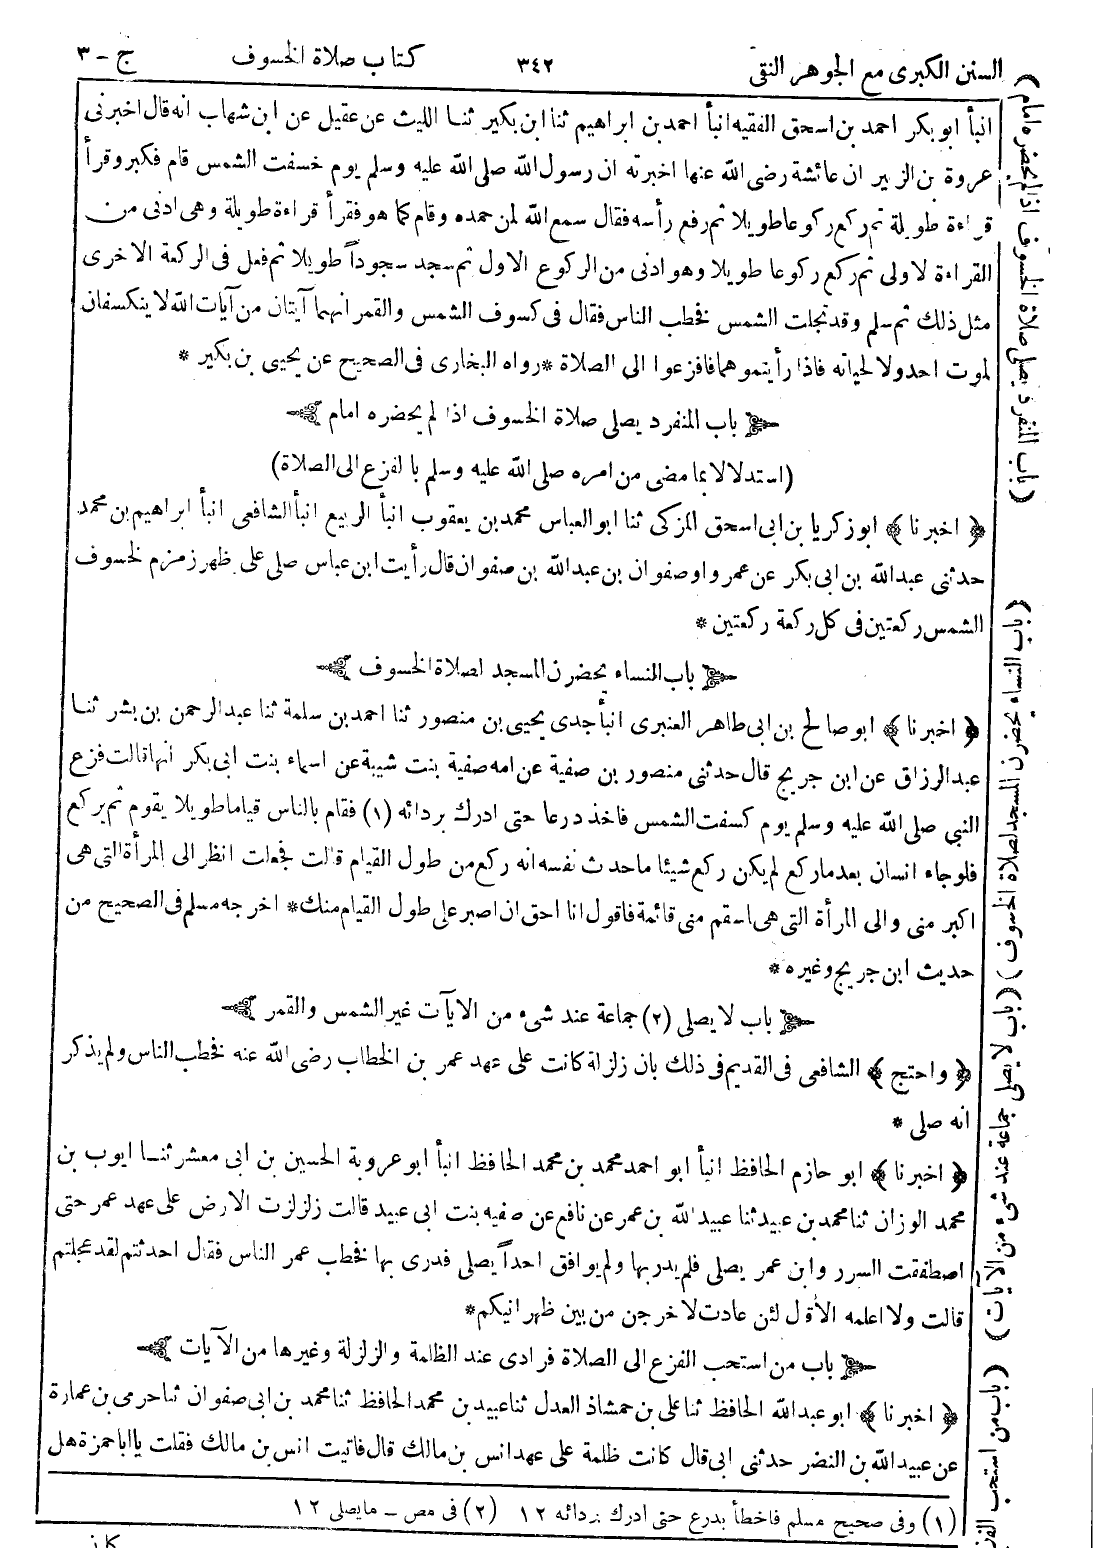 السنن الكبرى مع الجوهر النقى ٣٤٢ كتاب صلاة الخسوف ج - ٣
انبأ ابو بكر احمد بن اسحق الفقيه انبأ احمد بن ابراهيم ثنا ابن بكير ثنا الليث عن عقيل عن ابن شهاب انه قال اخبرنى
عروة بن الزبير ان عائشة رضى الله عنها اخبرته ان رسول الله صلى الله عليه وسلم يوم خسفت الشمس قام فكبر وقرأ
قراءة طويلة ثم ركع ركوعا طويلا ثم رفع رأسه فقال سمع الله لمن حمده وقام كما هو فقرأ قراءة طويلة وهى ادنى من
القراءة لاولى ثم ركع ركوعا طويلا وهو ادنى من الركوع الاول ثم سجد سجوداً طويلا ثم فعل فى الركعة الاخرى
مثل ذلك ثم سلم وقد تجلت الشمس فخطب الناس فقال فى كسوف الشمس والقمر انهما آيتان من آيات الله لا ينكسفان
لموت احد ولا لحياته فاذا رأيتموهما فافزعوا الى الصلاة * رواه البخارى فى الصحيح عن يحيى بن بكير *
باب المنفرد يصلى صلاة الخسوف اذا لم يحضره امام
(استدلالا بما مضى من امره صلى الله عليه وسلم بالفزع الى الصلاة)
﴿ اخبرنا ﴾ ابو زكريا بن ابى اسحق المزكى ثنا ابو العباس محمد بن يعقوب انبأ الربيع انبأ الشافعى انبأ ابراهيم بن محمد
حدثنى عبد الله بن ابى بكر عن عمرو او صفوان بن عبد الله بن صفوان قال رأيت ابن عباس صلى على ظهر زمزم لخسوف
الشمس ركعتين فى كل ركعة ركعتين *
باب النساء يحضرن المسجد لصلاة الخسوف
﴿ اخبرنا ﴾ ابو صالح بن ابى طاهر العنبرى انبأ جدى يحيى بن منصور ثنا احمد بن سلمة ثنا عبد الرحمن بن بشر ثنا
عبد الرزاق عن ابن جريج قال حدثنى منصور بن صفية عن امه صفية بنت شيبة عن اسماء بنت ابى بكر انها قالت فزع
النبي صلى الله عليه وسلم يوم كسفت الشمس فاخذ درعا حتى ادرك بردائه (١) فقام بالناس قياما طويلا يقوم ثم يركع
فلو جاء انسان بعد ما ركع لم يكن ركع شيئا ما حدث نفسه انه ركع من طول القيام قالت فجعلت انظر الى المرأة التى هى
اكبر منى والى المرأة التى هى اسقم منى قائمة فاقول انا احق ان اصبر على طول القيام منك * اخرجه مسلم فى الصحيح من
حديث ابن جريج وغيره *
باب لا يصلى (٢) جماعة عند شىء من الآيات غير الشمس والقمر
﴿ واحتج ﴾ الشافعى فى القديم فى ذلك بان زلزلة كانت على عهد عمر بن الخطاب رضى الله عنه فخطب الناس ولم يذكر
انه صلى *
﴿ اخبرنا ﴾ ابو حازم الحافظ انبأ ابو احمد محمد بن محمد الحافظ انبأ ابو عروبة الحسين بن ابى معشر ثنا ايوب بن
محمد الوزان ثنا محمد بن عبيد ثنا عبيد الله بن عمر عن نافع عن صفيه بنت ابى عبيد قالت زلزلت الارض على عهد عمر حتى
اصطفقت السرر وابن عمر يصلى فلم يدر بها ولم يوافق احداً يصلى فدرى بها فخطب عمر الناس فقال احدثتم لقد عجلتم
قالت ولا اعلمه الا قال لئن عادت لاخرجن من بين ظهرانيكم *
باب من استحب الفزع الى الصلاة فرادى عند الظلمة والزلزلة وغيرها من الآيات
﴿ اخبرنا ﴾ ابو عبد الله الحافظ ثنا على بن حمشاذ العدل ثنا عبيد بن محمد الحافظ ثنا محمد بن ابى صفوان ثنا حرمى بن عمارة
عن عبيد الله بن النضر حدثنى ابى قال كانت ظلمة على عهد انس بن مالك قال فاتيت انس بن مالك فقلت يا ابا حمزة هل
(١) وفى صحيح مسلم فاخطأ بدرع حتى ادرك بردائه ١٢ (٢) فى مص - ما يصلى ١٢
(باب المنفرد يصلى صلاة الخسوف اذا لم يحضره امام)
(باب النساء يحضرن المسجد لصلاة الخسوف) (باب لا يصلى جماعة عند شىء من الآيات)
(باب من استحب الفز